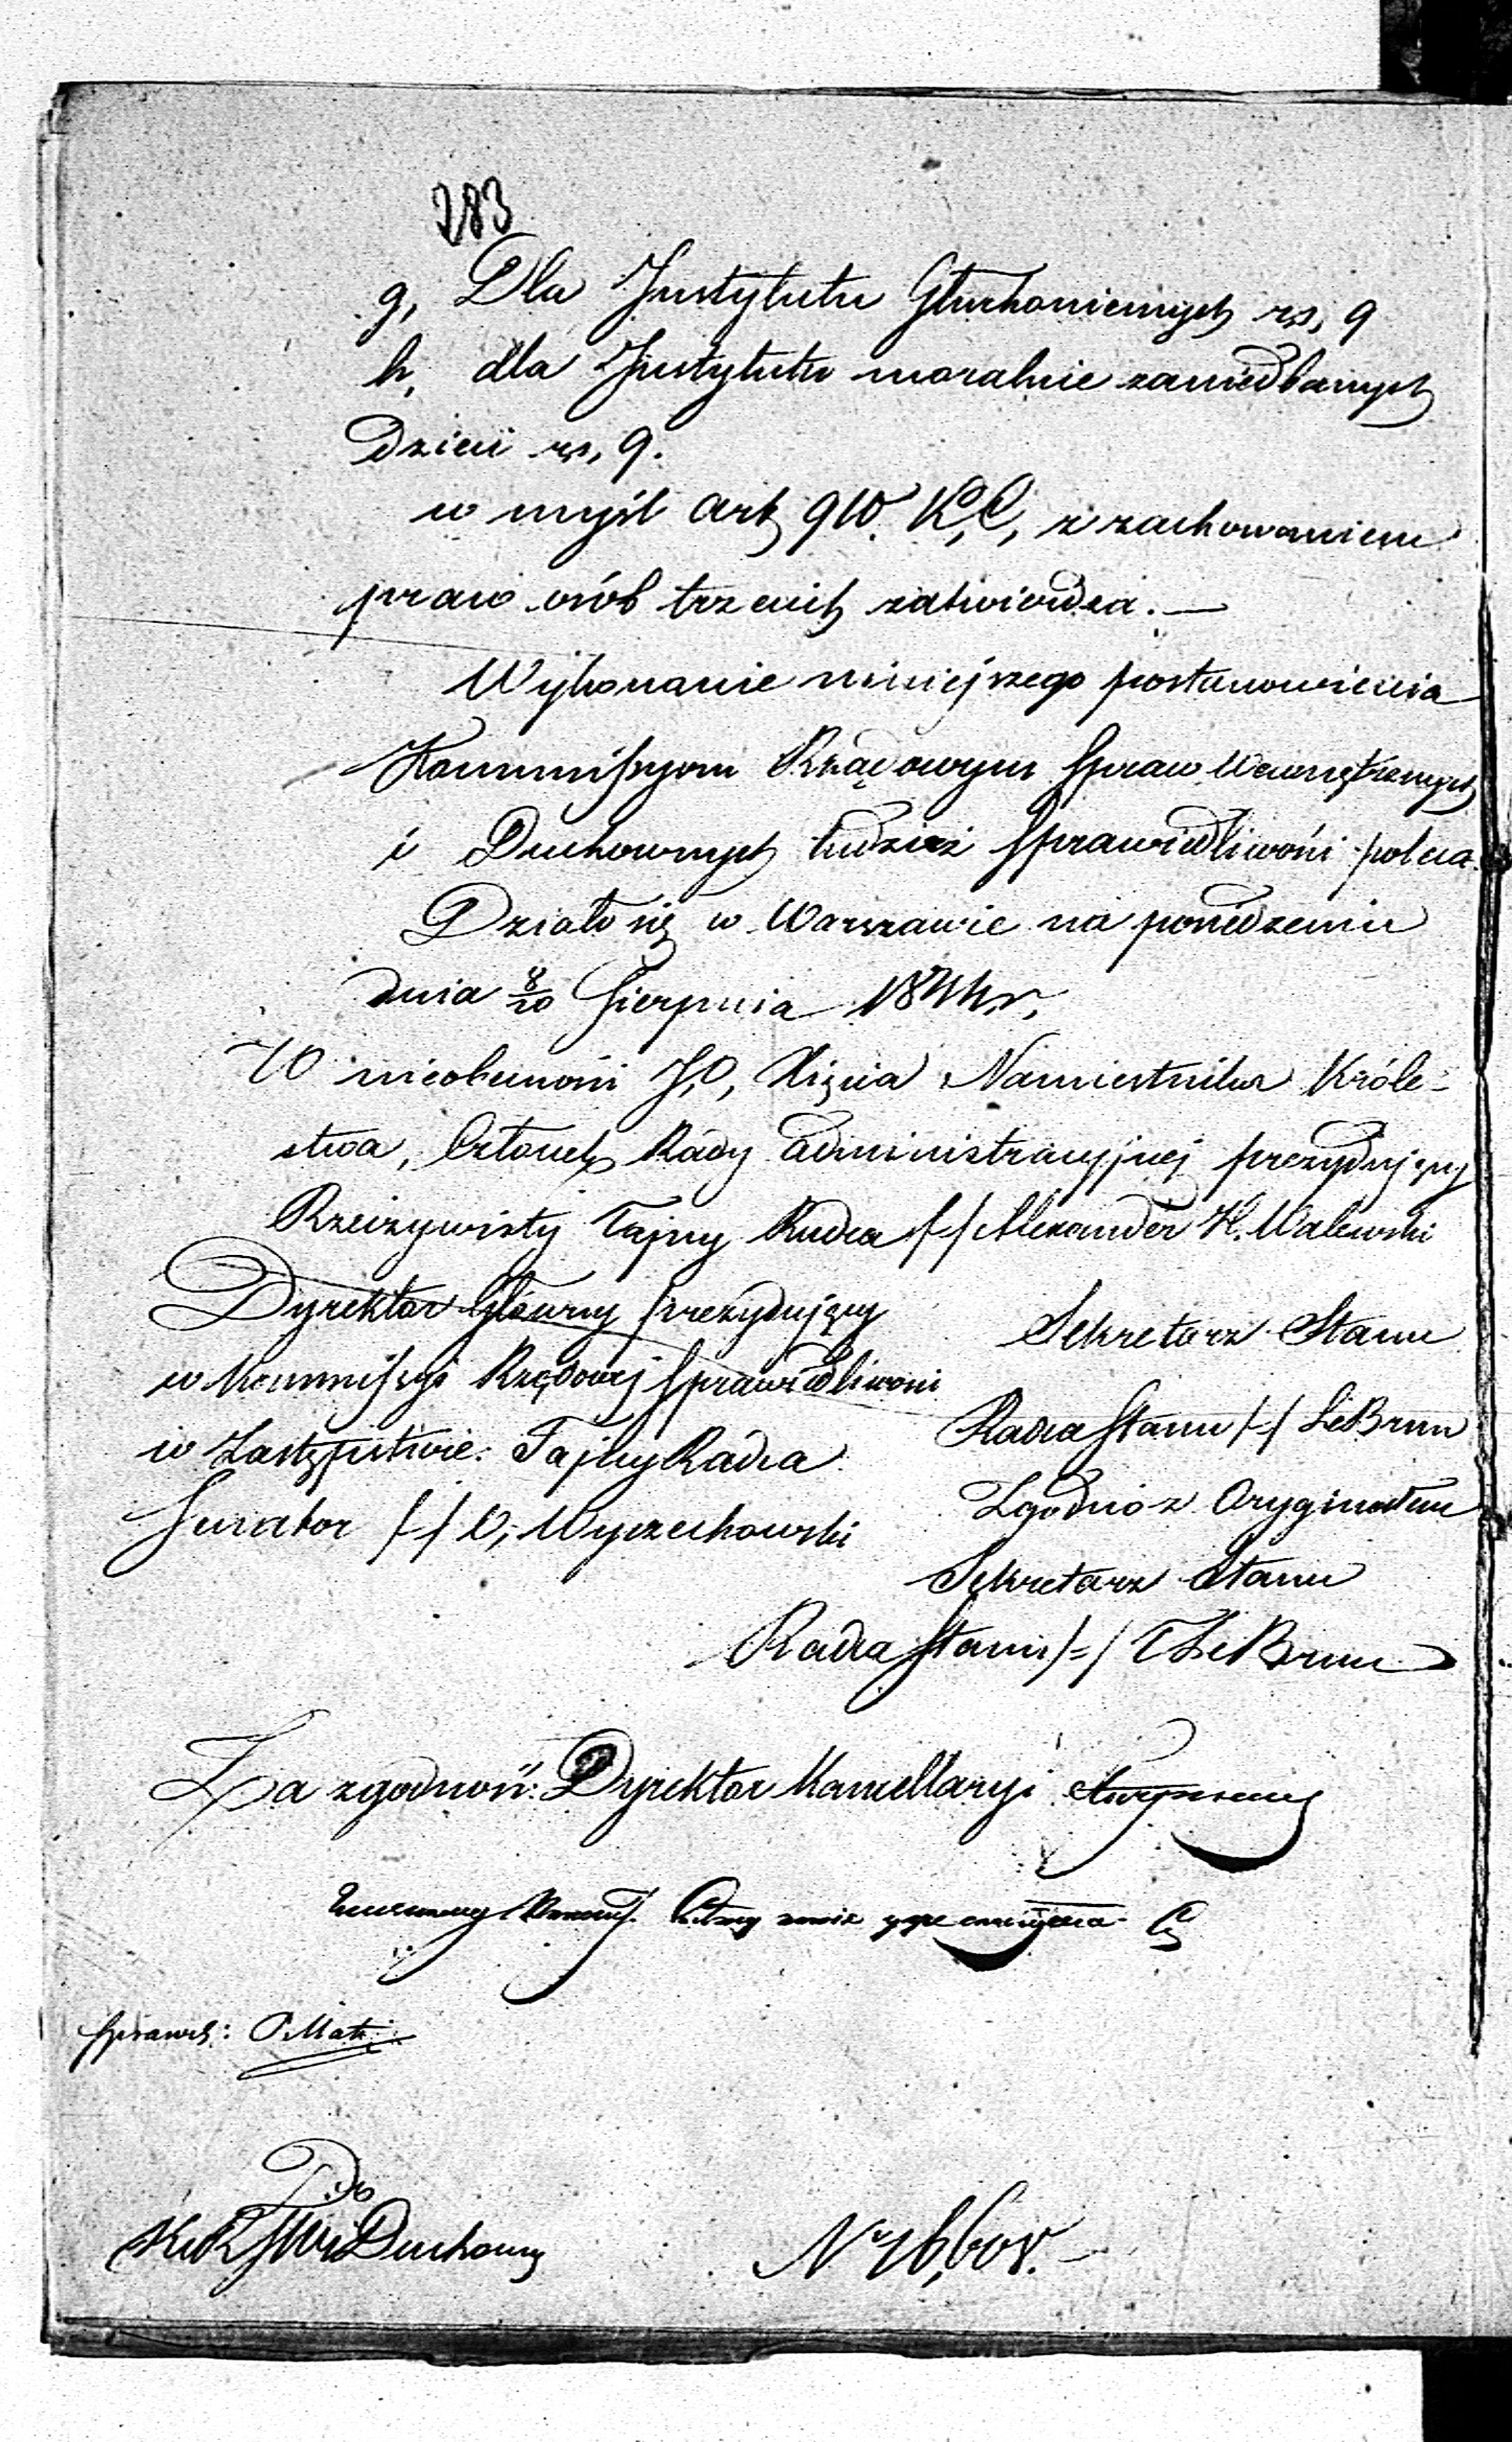 283
g, Dla Instytutu Głuchoniemych rs, 9
h, dla Instytutu moralnie zaniedbanych
Dzieci rs, 9.
w myśl art 910. K, C, z zachowaniem
praw osób trzecich zatwierdza. —
Wykonanie niniejszego postanowienia
Kommissyom Rządowym Spraw Wewnętrznych
i Duchownych tudzież Sprawiedliwości poleca.
Działo się w Warszawie na posiedzeniu
dnia 8/20 Sierpnia 1844 r,
W nieobecności J, O, Xięcia Namiestnika Króle-
stwa, Członek Rady Administracyjnej prezydujący
Rzeczywisty Tajny Radca /-/ Alexander H. Walewski
Dyrektor Główny prezydujący
w Kommissyi Rządowej Sprawiedliwości
w Zastępstwie: Tajny Radca
Senator /-/ O, Wyczechowski
Sekretarz Stanu
Radca Stanu /-/ LeBrun
Zgodno z Oryginałem
Sekretarz Stanu
Radca Stanu /=/ T LeBrun
Za zgodność: Dyrektor Kancellaryi
Sprawdz:
Do
K. R. S. W. i Duchown
Nr 16,608. —